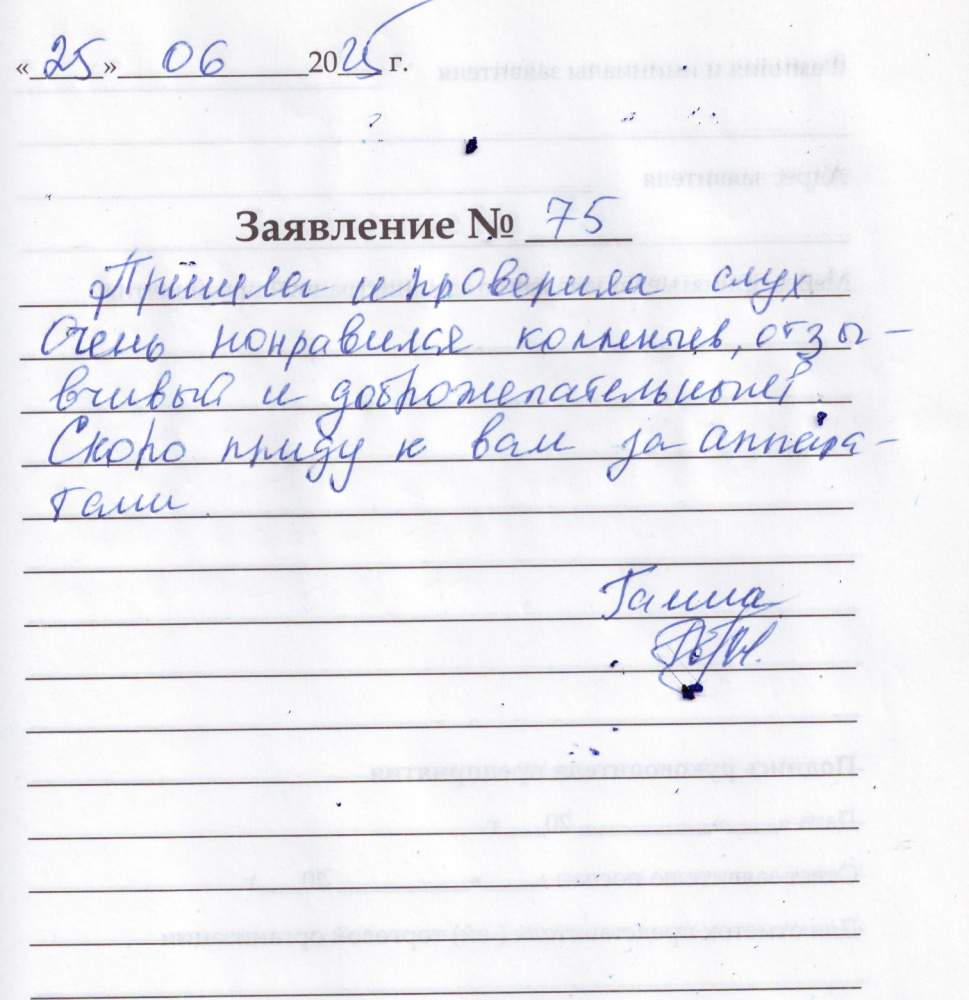 «25» 06 2025 г.
Заявление № 75
Пришла и проверила слух
Очень понравился коллектив, отзы-
вчивый и доброжелательный.
Скоро приду к вам за аппара-
тами
Галина